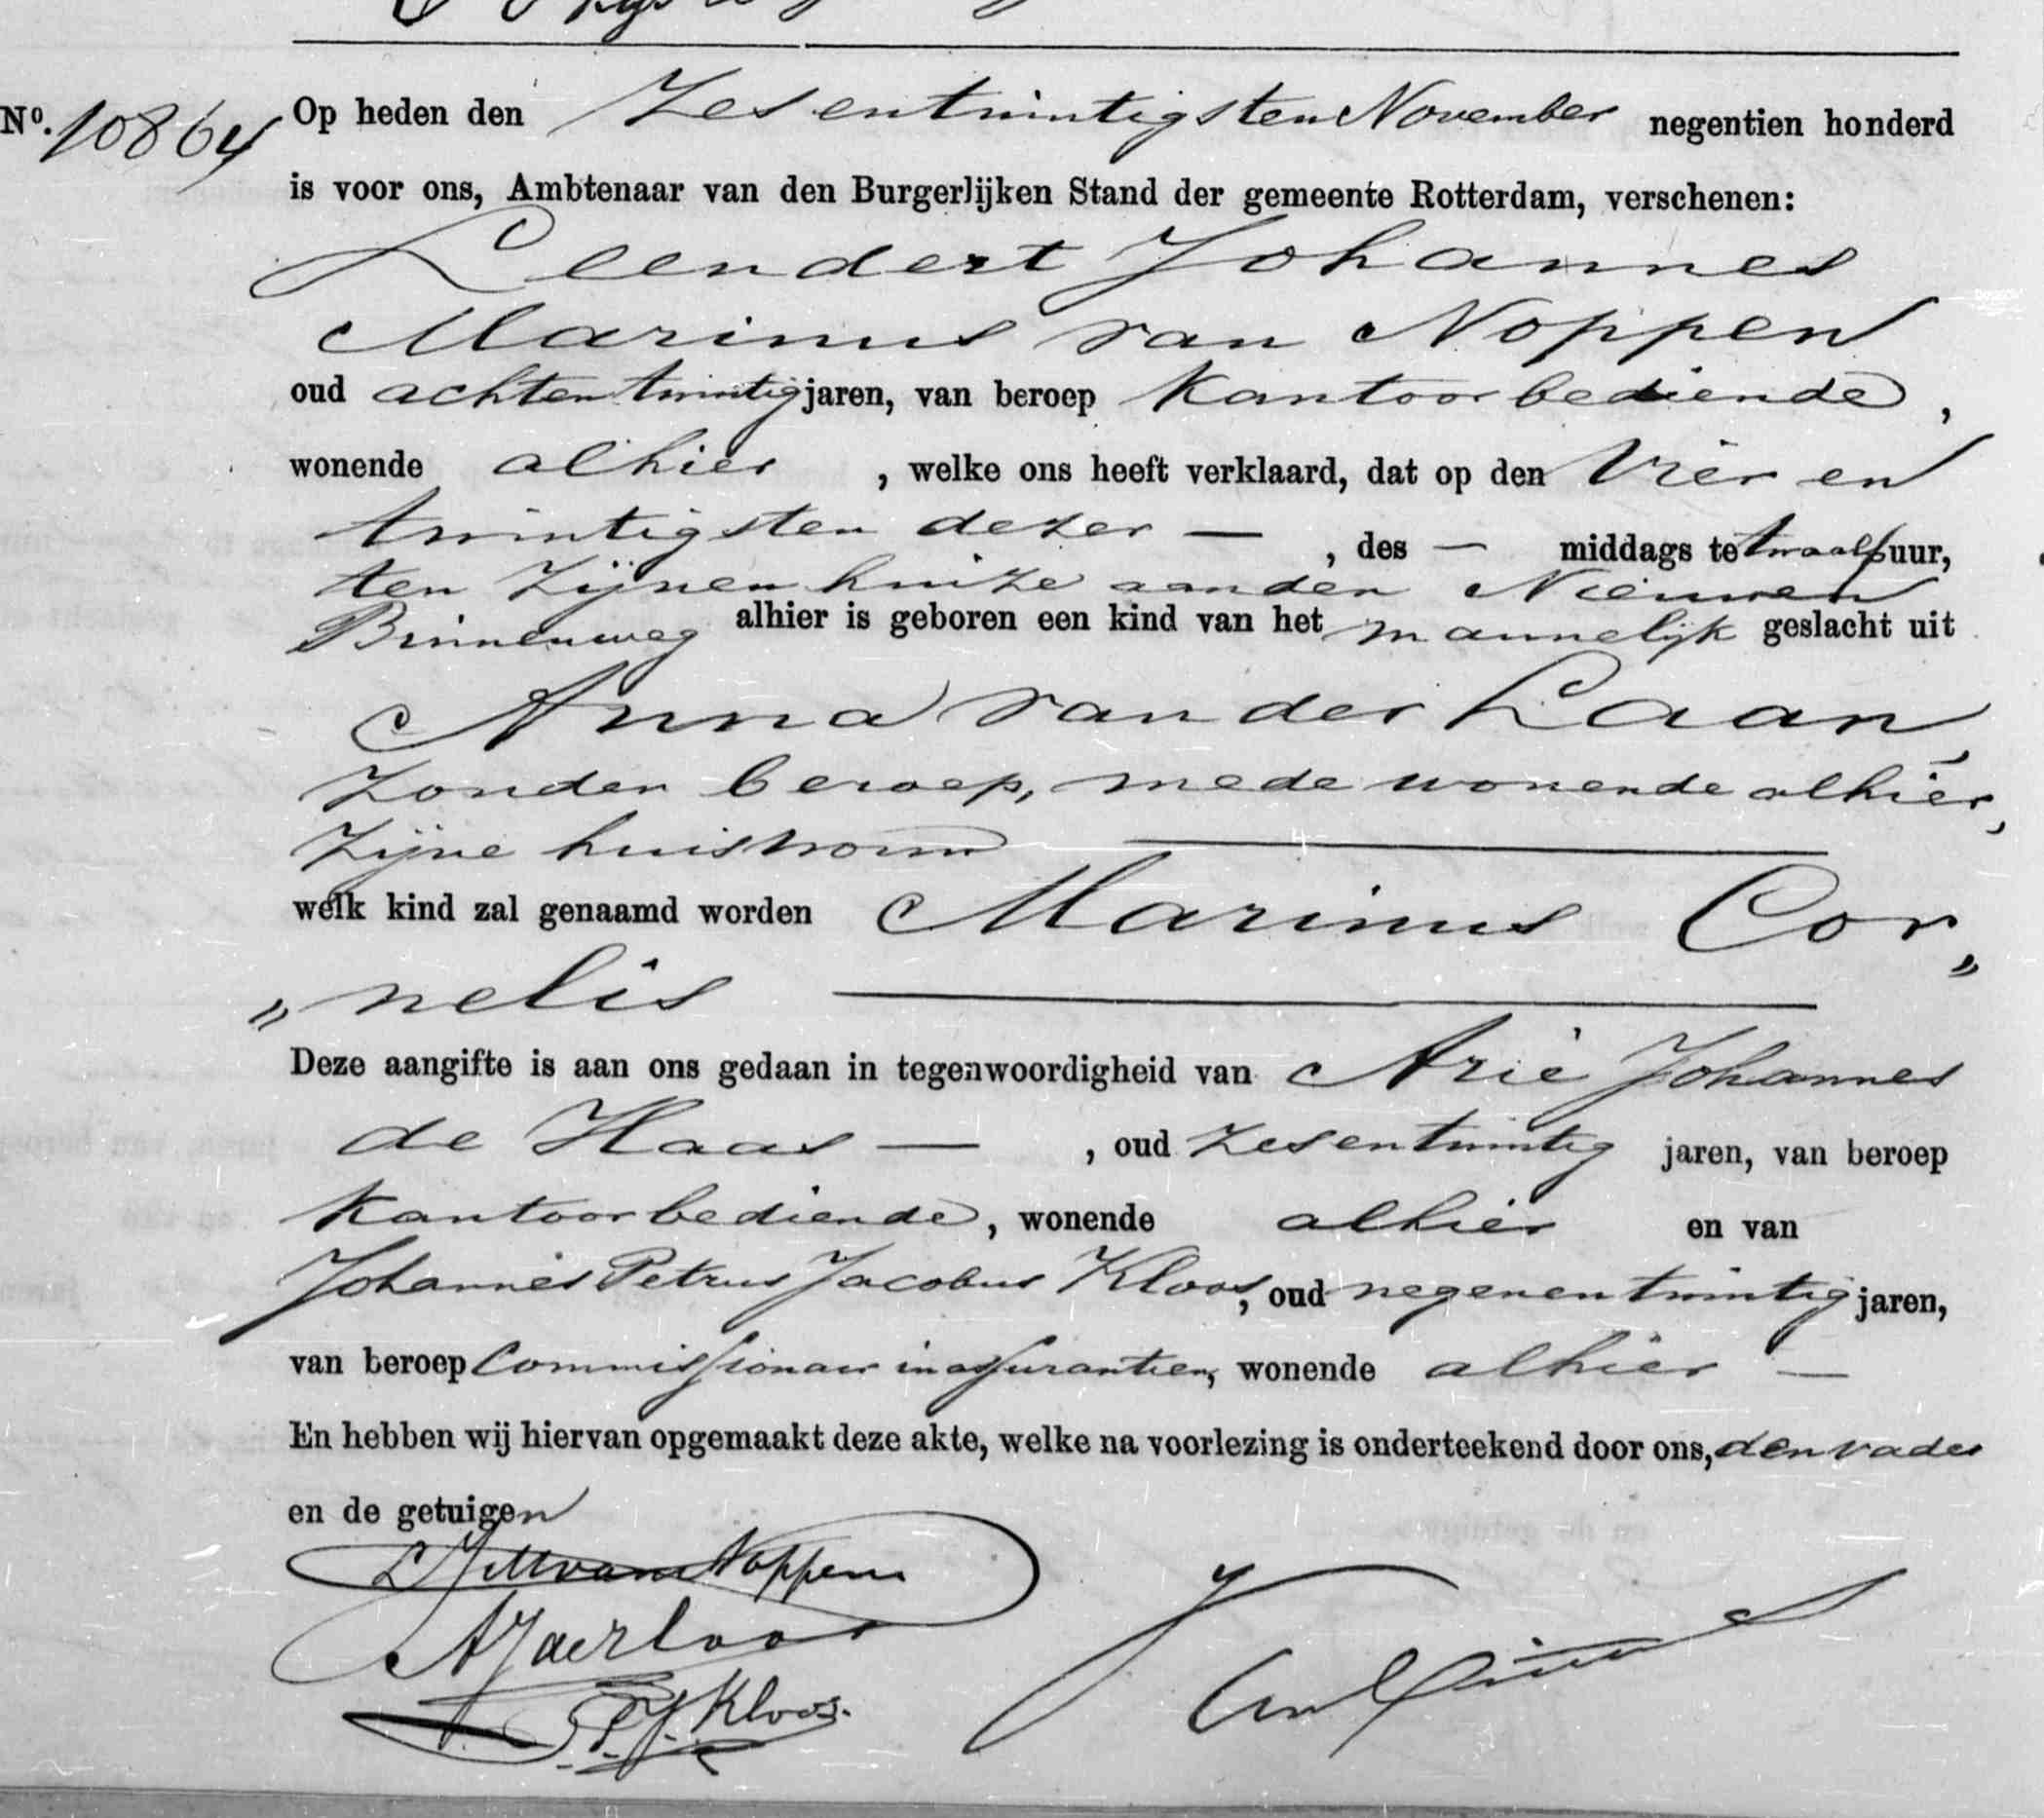 Nº. 10864
Op heden den Zesentwintigsten November negentien honderd
is voor ons, Ambtenaar van den Burgerlijken Stand der gemeente Rotterdam, verschenen:
Leendert Johannes
Marinus van Noppen
oud achtentwintig jaren, van beroep kantoorbediende,
wonende alhier, welke ons heeft verklaard, dat op den Vier en
twintigsten dezer —, des — middags te twaalf uur,
ten zijnen huize aan den Nieuwen
Binnenweg alhier is geboren een kind van het mannelijk geslacht uit
Anna van der Laan,
zonder beroep, mede wonende alhier,
zijne huisvrouw
welk kind zal genaamd worden Marinus Cor„
„nelis
Deze aangifte is aan ons gedaan in tegenwoordigheid van Arie Johannes
de Haas —, oud zesentwintig jaren, van beroep
kantoorbediende, wonende alhier en van
Johannes Petrus Jacobus Kloos, oud negenentwintig jaren,
van beroep Commissionair in assurantien, wonende alhier —
En hebben wij hiervan opgemaakt deze akte, welke na voorlezing is onderteekend door ons, den vader
en de getuigen
LJM van Noppen
J.P.J. Kloos.